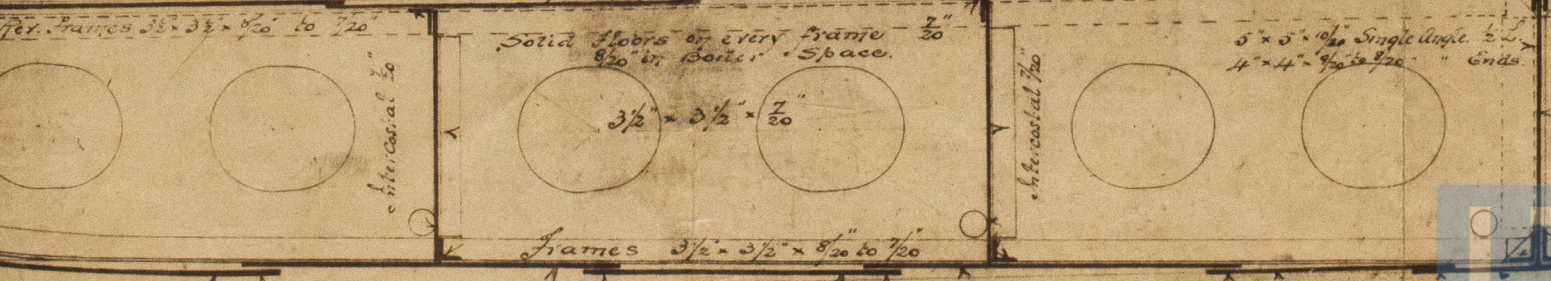 Frames 3½" × 3½" × 8/20" to 7/20"
Intercostal 7/20"
Solid Floors on every frame 7/20"
8/20" in Boiler Space.
3½" × 3½" × 7/20"
Frames 3½" × 3½" × 8/20" to 7/20"
Intercostal 7/20"
5" × 5" × 10/20 Single Angle. ½ L.
4" × 4" × 9/20" to 8/20 " " Ends.